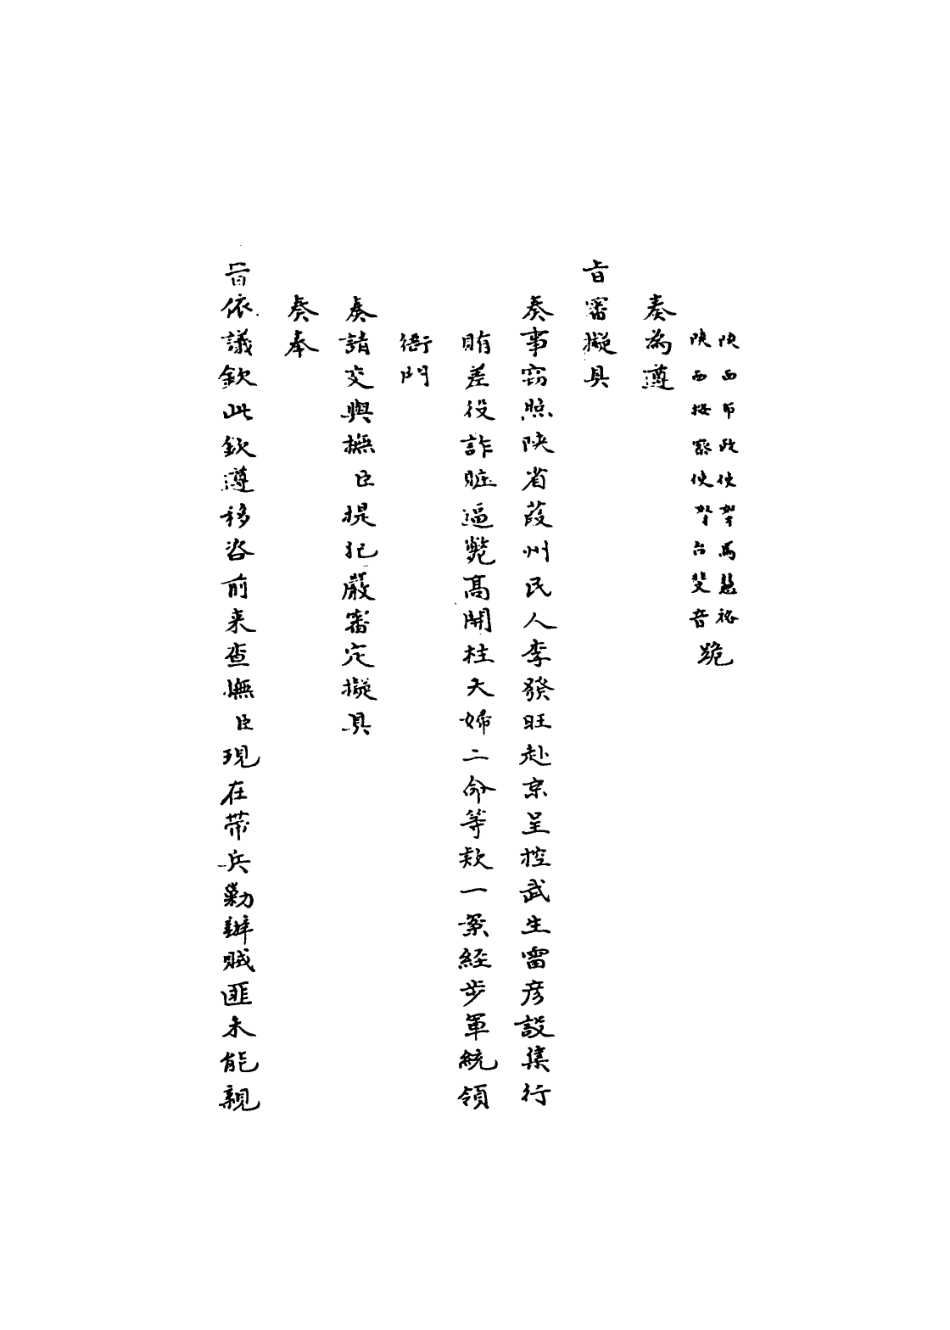 陝西布政使奴才馬慧裕
陝西按察使奴才台斐音
跪
奏為遵
旨審擬具
奏事窃照陝省葭州民人李發旺赴京呈控武生雷彦設集行
賄差役詐賍逼斃髙開柱夫婦二命等欵一案経步軍統領
衙門
奏請交與撫臣提犯嚴審定擬具
奏奉
旨依議欽此欽遵移咨前来查撫臣現在带兵勦辦賊匪未能親